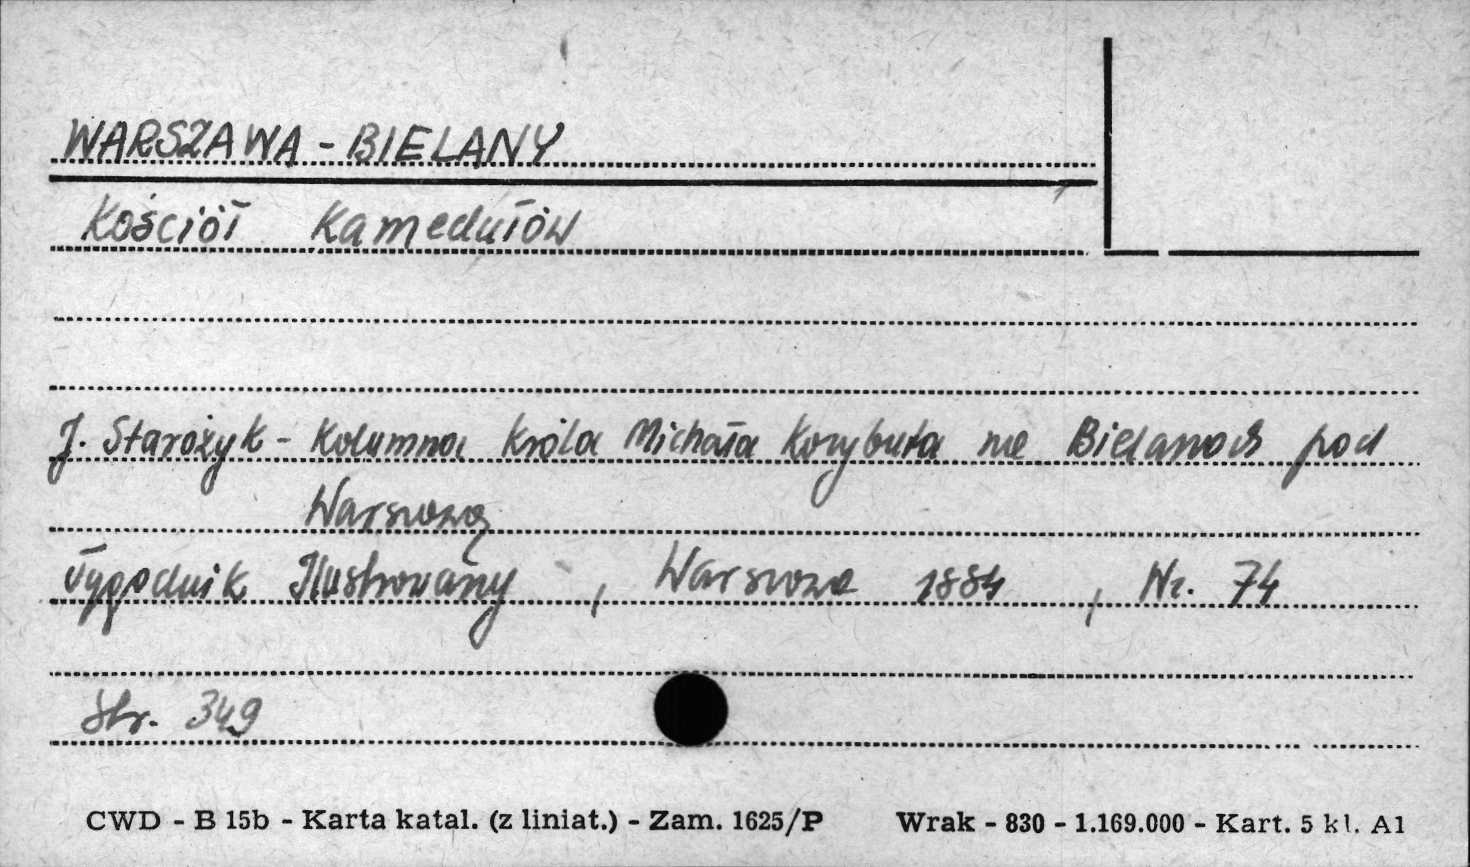 WARSZAWA - BIELANY
Kościół Kamedułów
J. Starożyk - Kolumna Króla Michała Korybuta na Bielanach pod
Warszawą
Tygodnik Ilustrowany , Warszawa 1884 , Nr. 74
Str. 349
CWD - B 15b - Karta katal. (z liniat.) - Zam. 1625/P Wrak - 830 - 1.169.000 - Kart. 5 kl. A1